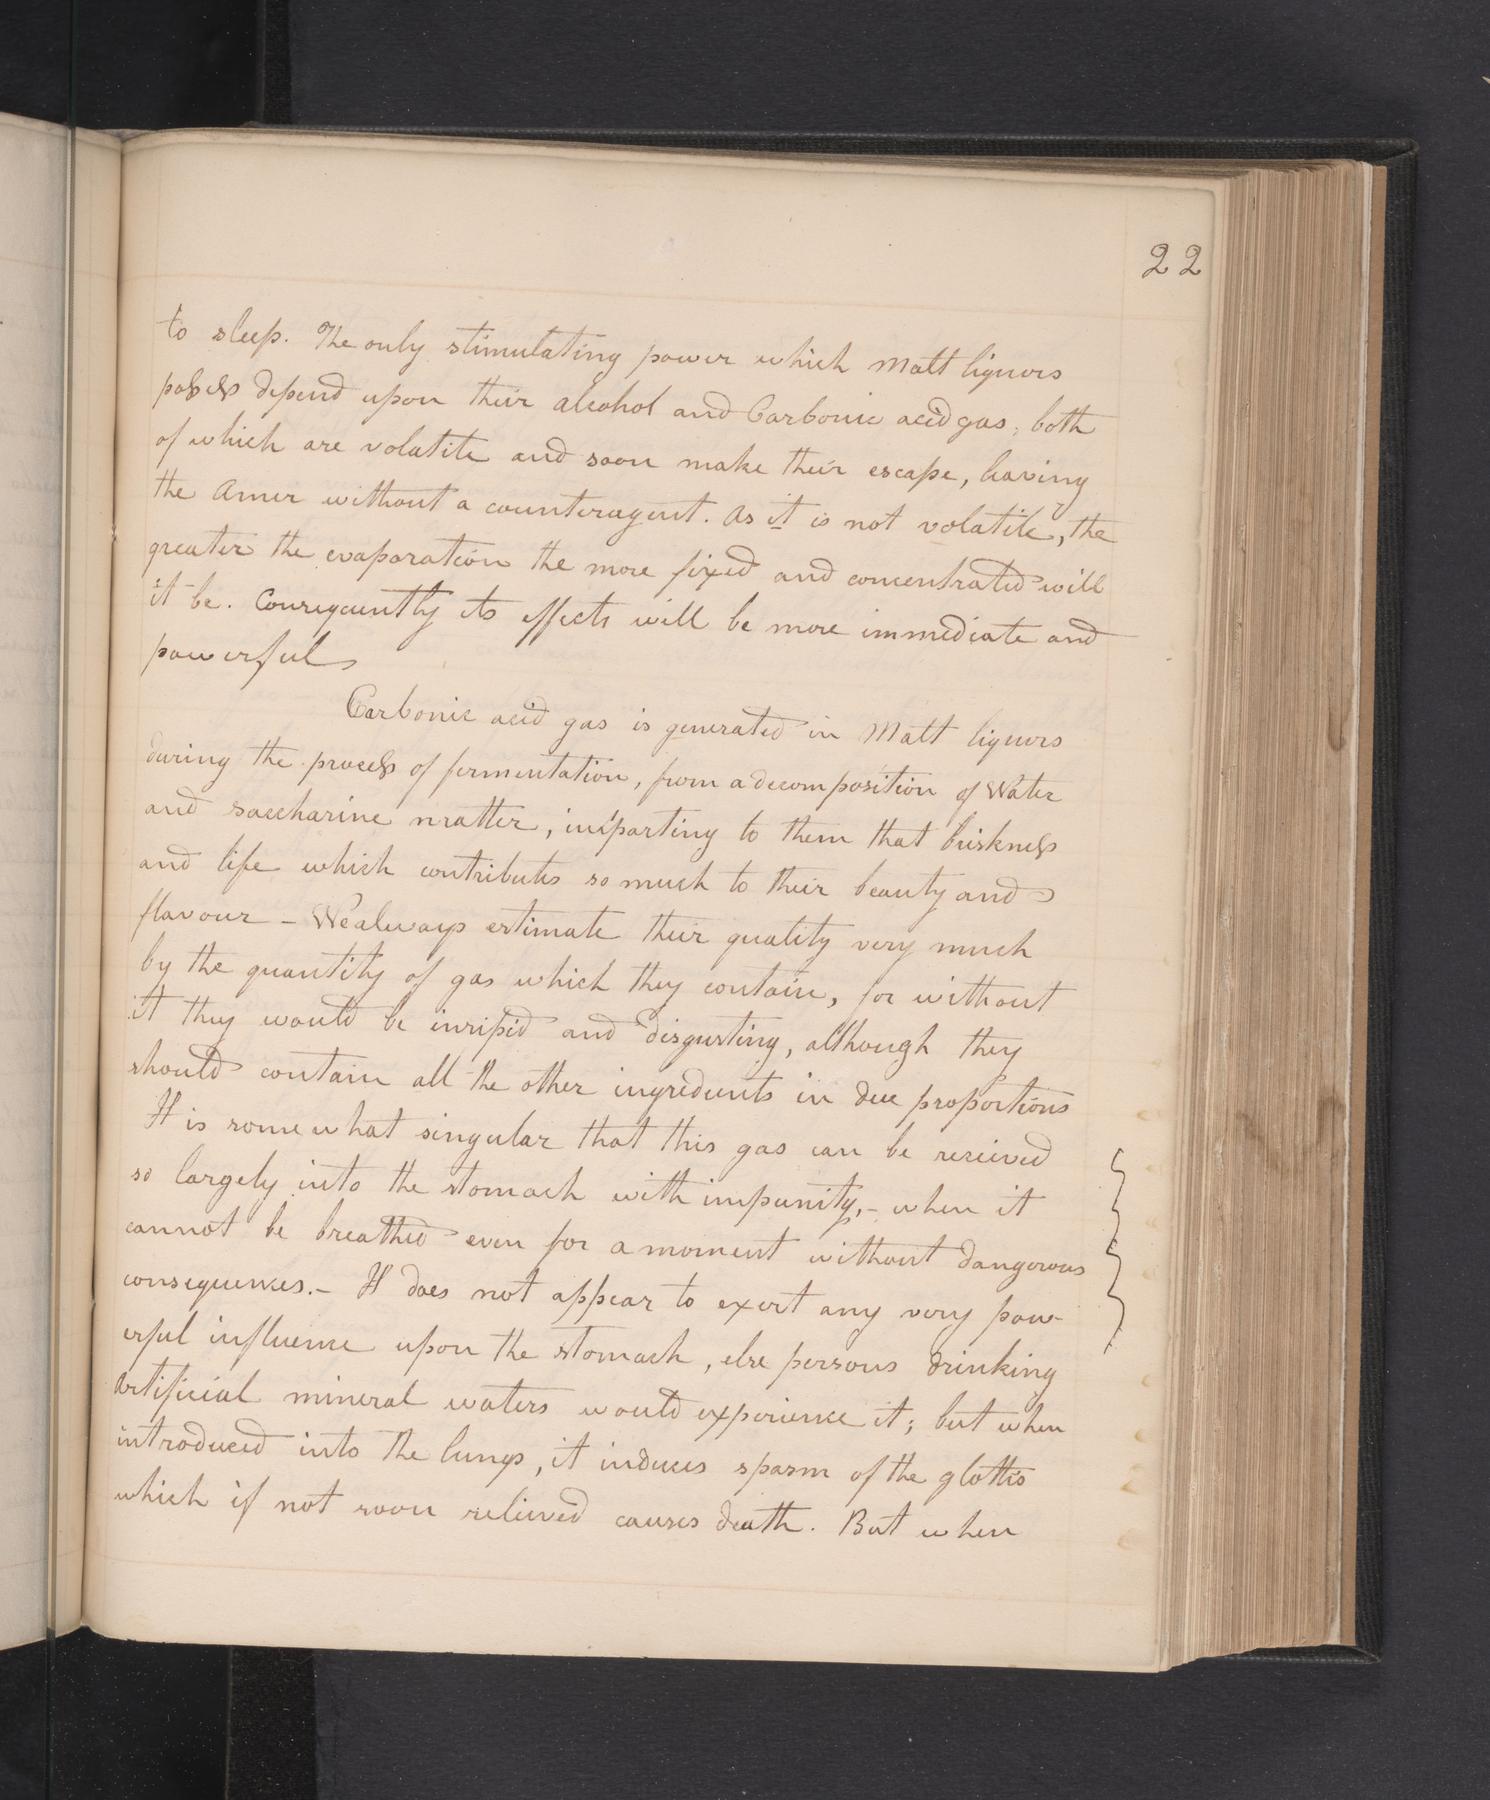 22
to sleep. The only stimulating power which Malt liquors
possess depend upon their alcohol and Carbonic acid gas, both
of which are volatile and soon make their escape, leaving
the Amer without a counteragent. As it is not volatile, the
greater the evaporation the more fixed and concentrated will
it be. Consequently its effects will be more immediate and
powerful
Carbonic acid gas is generated in Malt liquors
during the process of fermentation, from a decomposition of Water
and saccharine matter, imparting to them that briskness
and life which contributes so much to their beauty and
flavour – We always estimate their quality very much
by the quantity of gas which they contain, for without
it they would be insipid and disgusting, although they
should contain all the other ingredients in due proportions
It is somewhat singular that this gas can be received
so largely into the stomach with impunity, – when it
cannot be breathed even for a moment without dangerous
consequences. – It does not appear to exert any very pow-
erful influence upon the stomach, else persons drinking
artificial mineral waters would experience it; but when
introduced into the lungs, it induces spasm of the glottis
which if not soon relieved causes death. But when